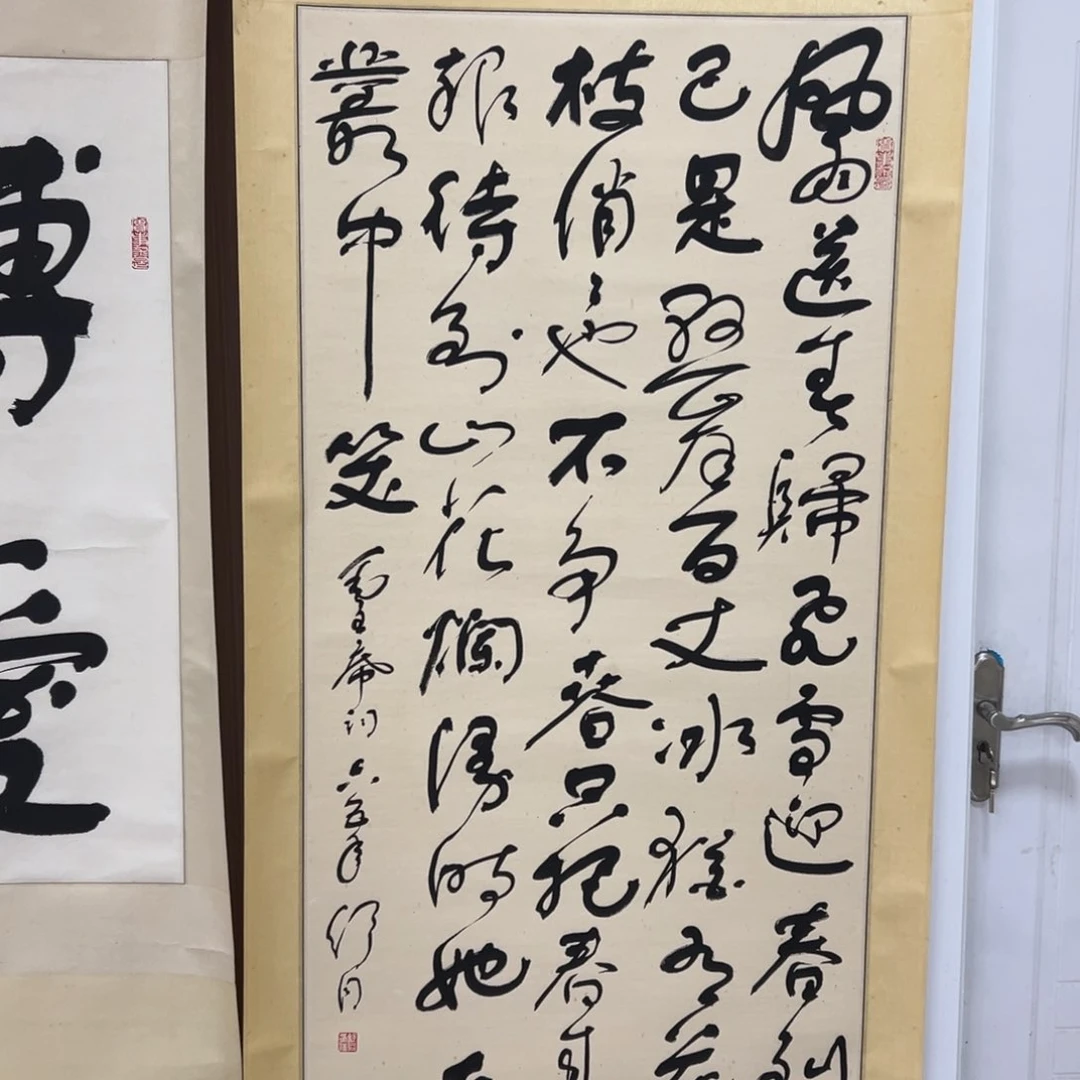 風雨送春歸飛雪迎春到
已是懸崖百丈冰猶有花
枝俏〻也不争春只把春来
報待到山花爛漫時她在
叢中笑
毛主席詞六五年
博愛